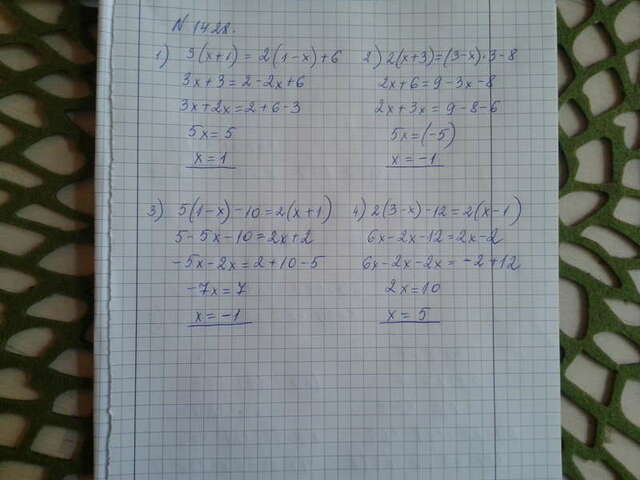 N 1428.
1) 3(x+1) = 2(1-x)+6
3x+3 = 2-2x+6
3x+2x = 2+6-3
5x = 5
x = 1
2) 2(x+3)=(3-x)·3-8
2x+6 = 9-3x-8
2x+3x = 9-8-6
5x = (-5)
x = -1
3) 5(1-x)-10=2(x+1)
5-5x-10=2x+2
-5x-2x=2+10-5
-7x = 7
x = -1
4) 2(3-x)-12=2(x-1)
6x-2x-12=2x-2
6x-2x-2x = -2+12
2x=10
x = 5